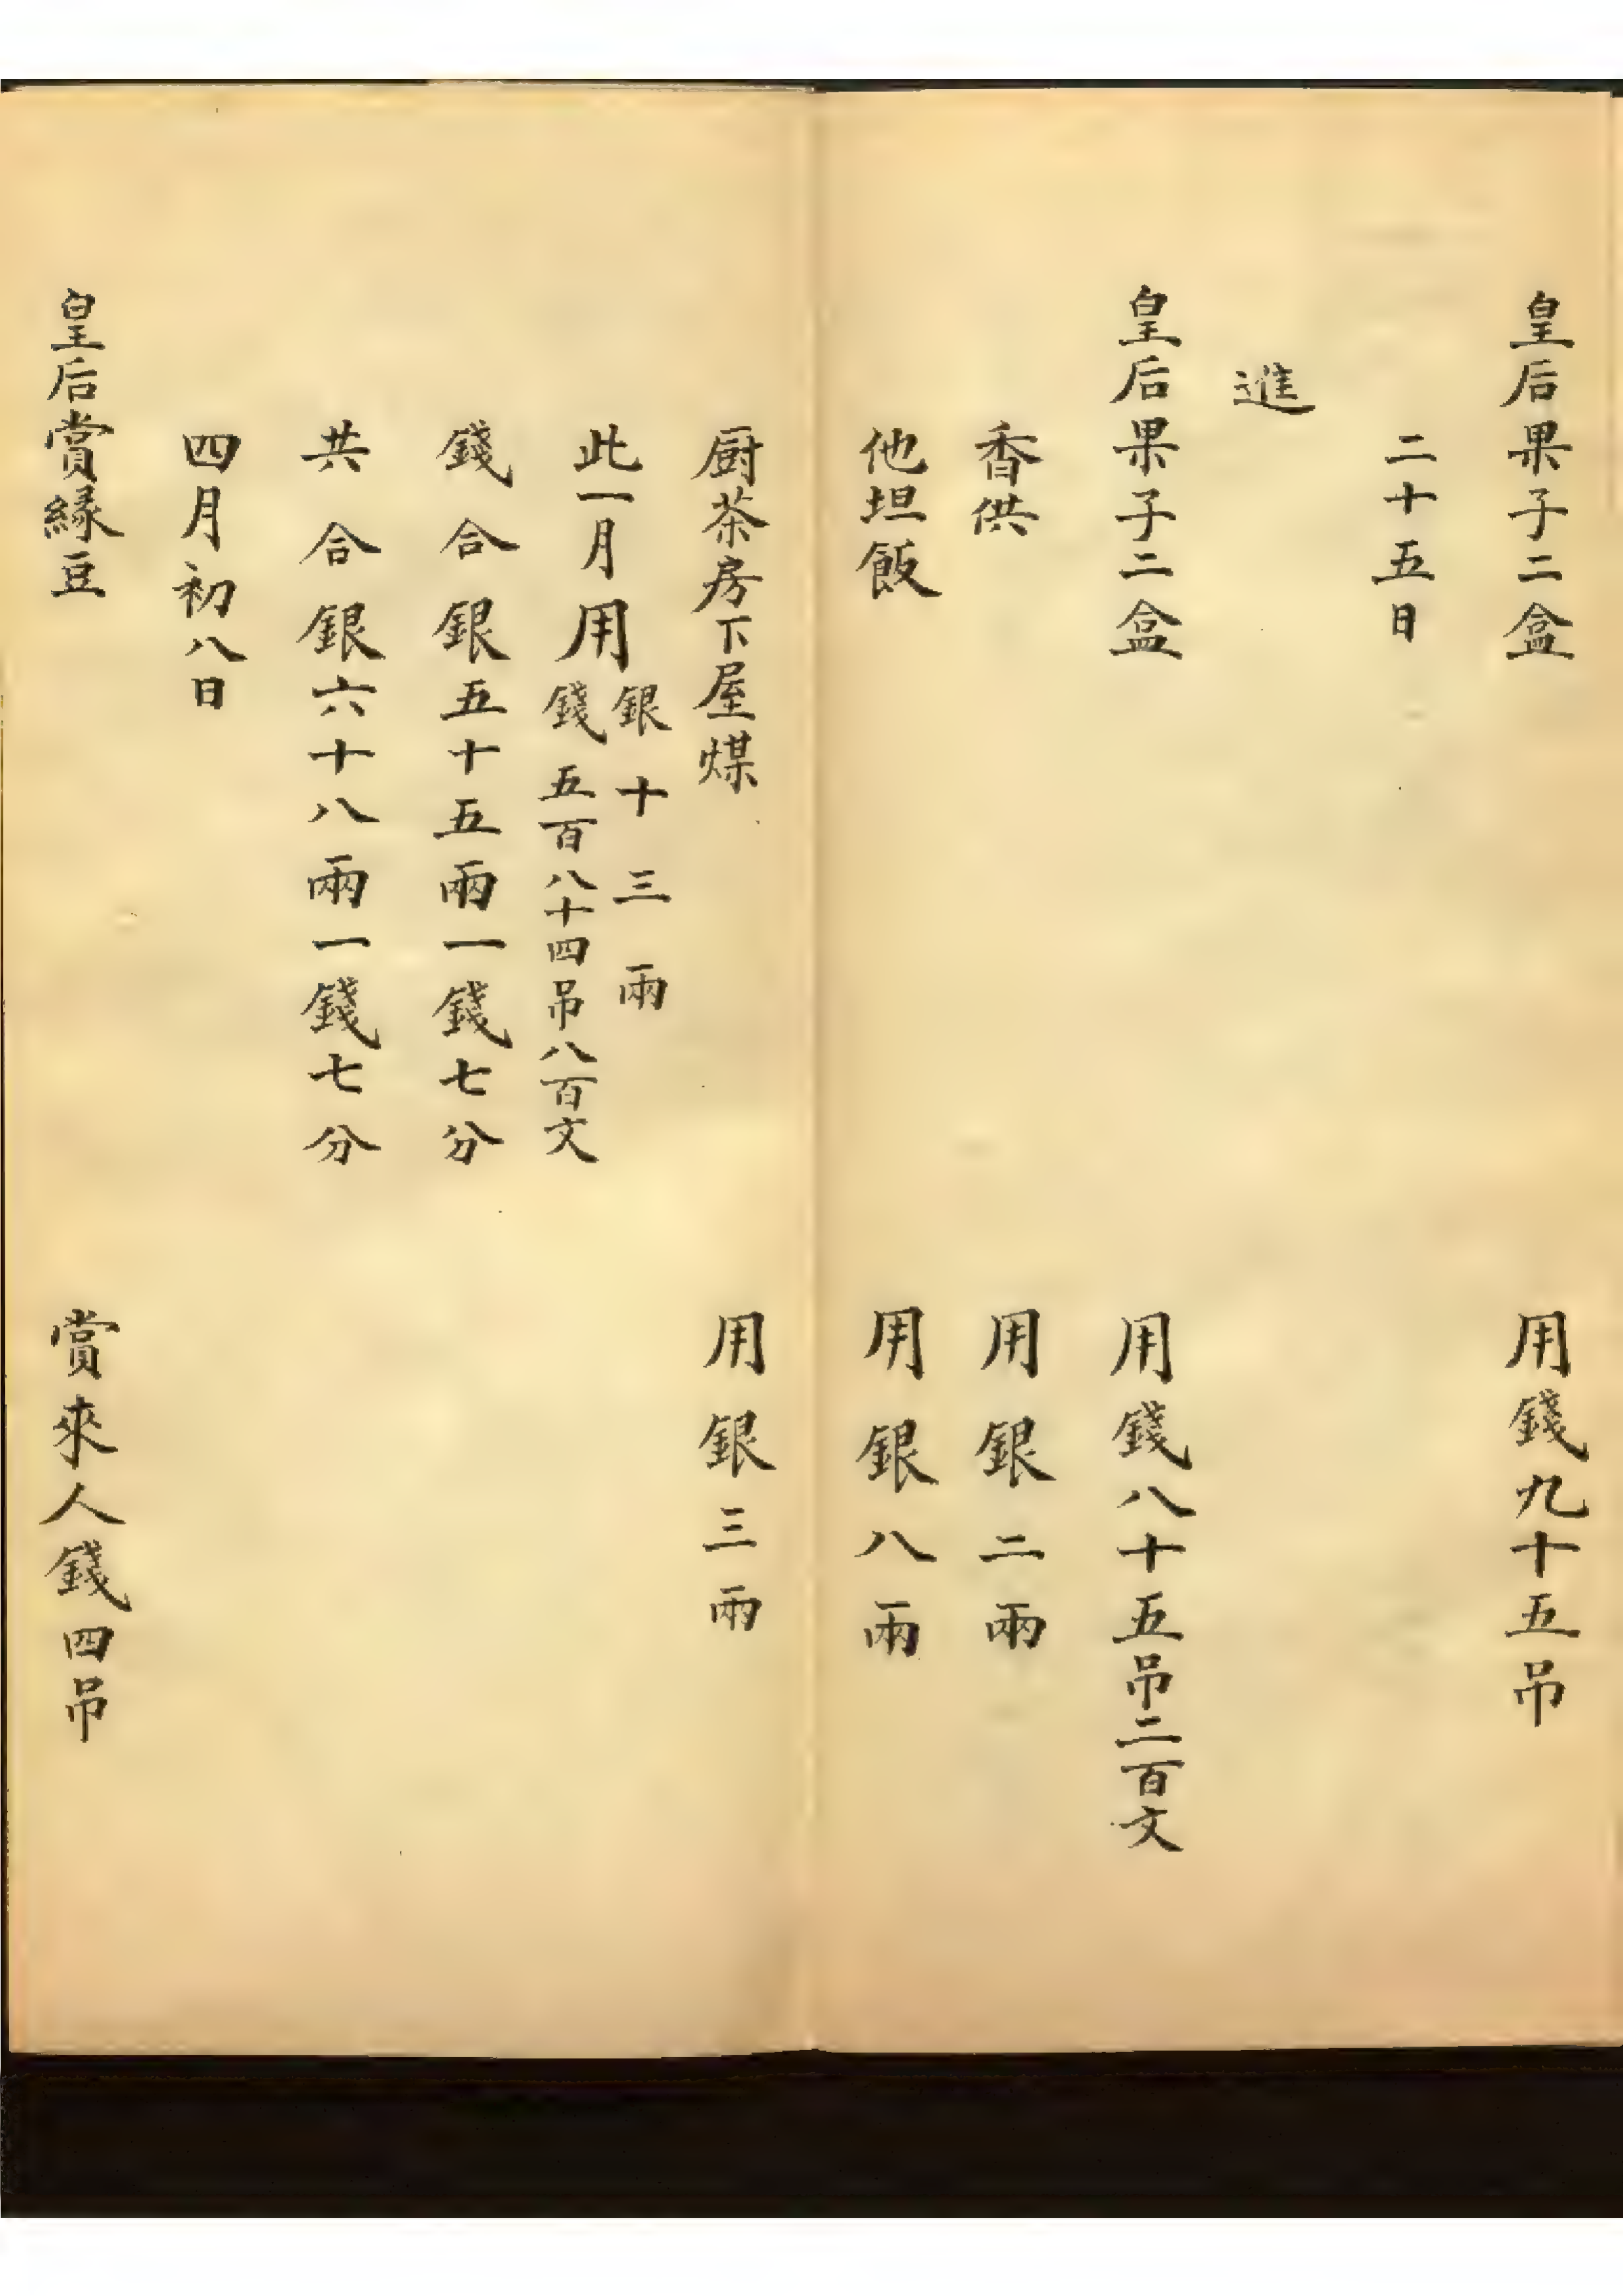 皇后果子二盒　用錢九十五吊
二十五日
進
皇后果子二盒　用錢八十五吊二百文
香供　用銀二兩
他坦飯　用銀八兩
厨茶房下屋煤　用銀三兩
此一月用銀十三兩
錢五百八十四吊八百文
錢合銀五十五兩一錢七分
共合銀六十八兩一錢七分
四月初八日
皇后賞緣豆　賞來人錢四吊